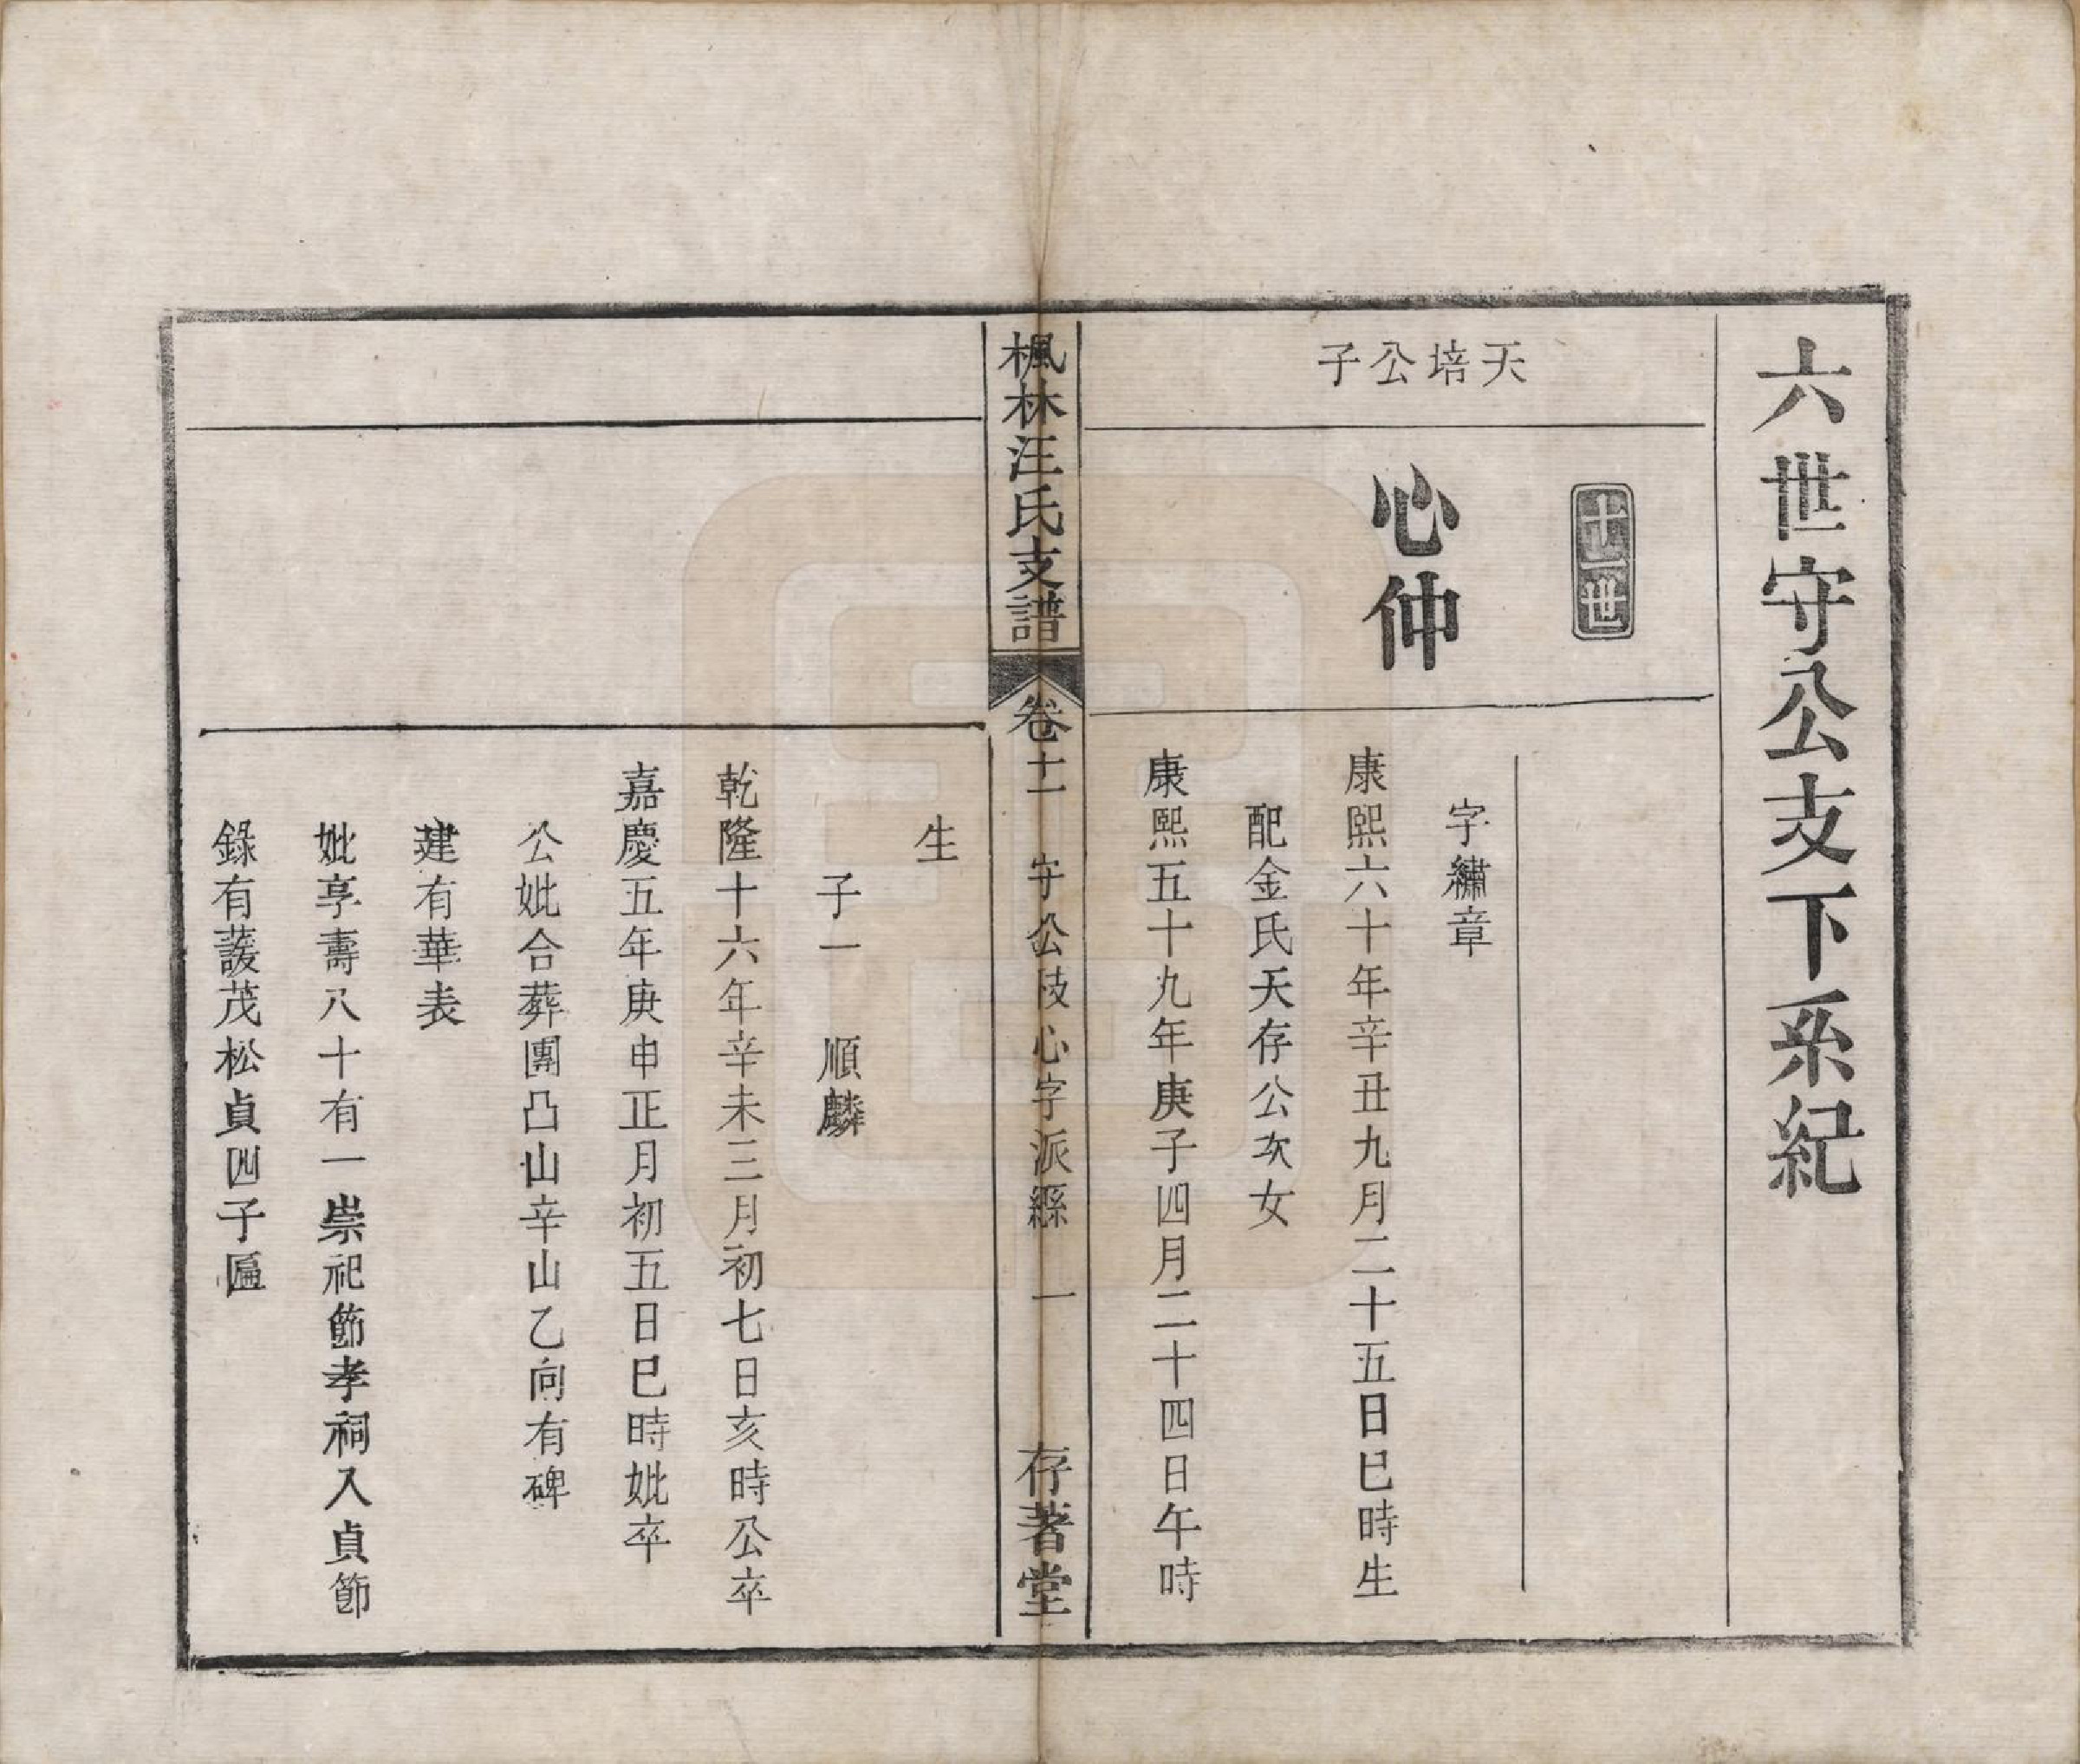 六世守公支下系紀
十一世
天培公子
心仲
字繡章
康熙六十年辛丑九月二十五日巳時生
配金氏天存公次女
康熙五十九年庚子四月二十四日午時
楓林汪氏支譜 卷十一 守公枝心字派繇 一 存著堂
生
子一 順麟
乾隆十六年辛未三月初七日亥時公卒
嘉慶五年庚申正月初五日巳時妣卒
公妣合葬團凸山辛山乙向有碑
建有華表
妣享壽八十有一崇祀節孝祠入貞節
錄有護茂松貞四子匾